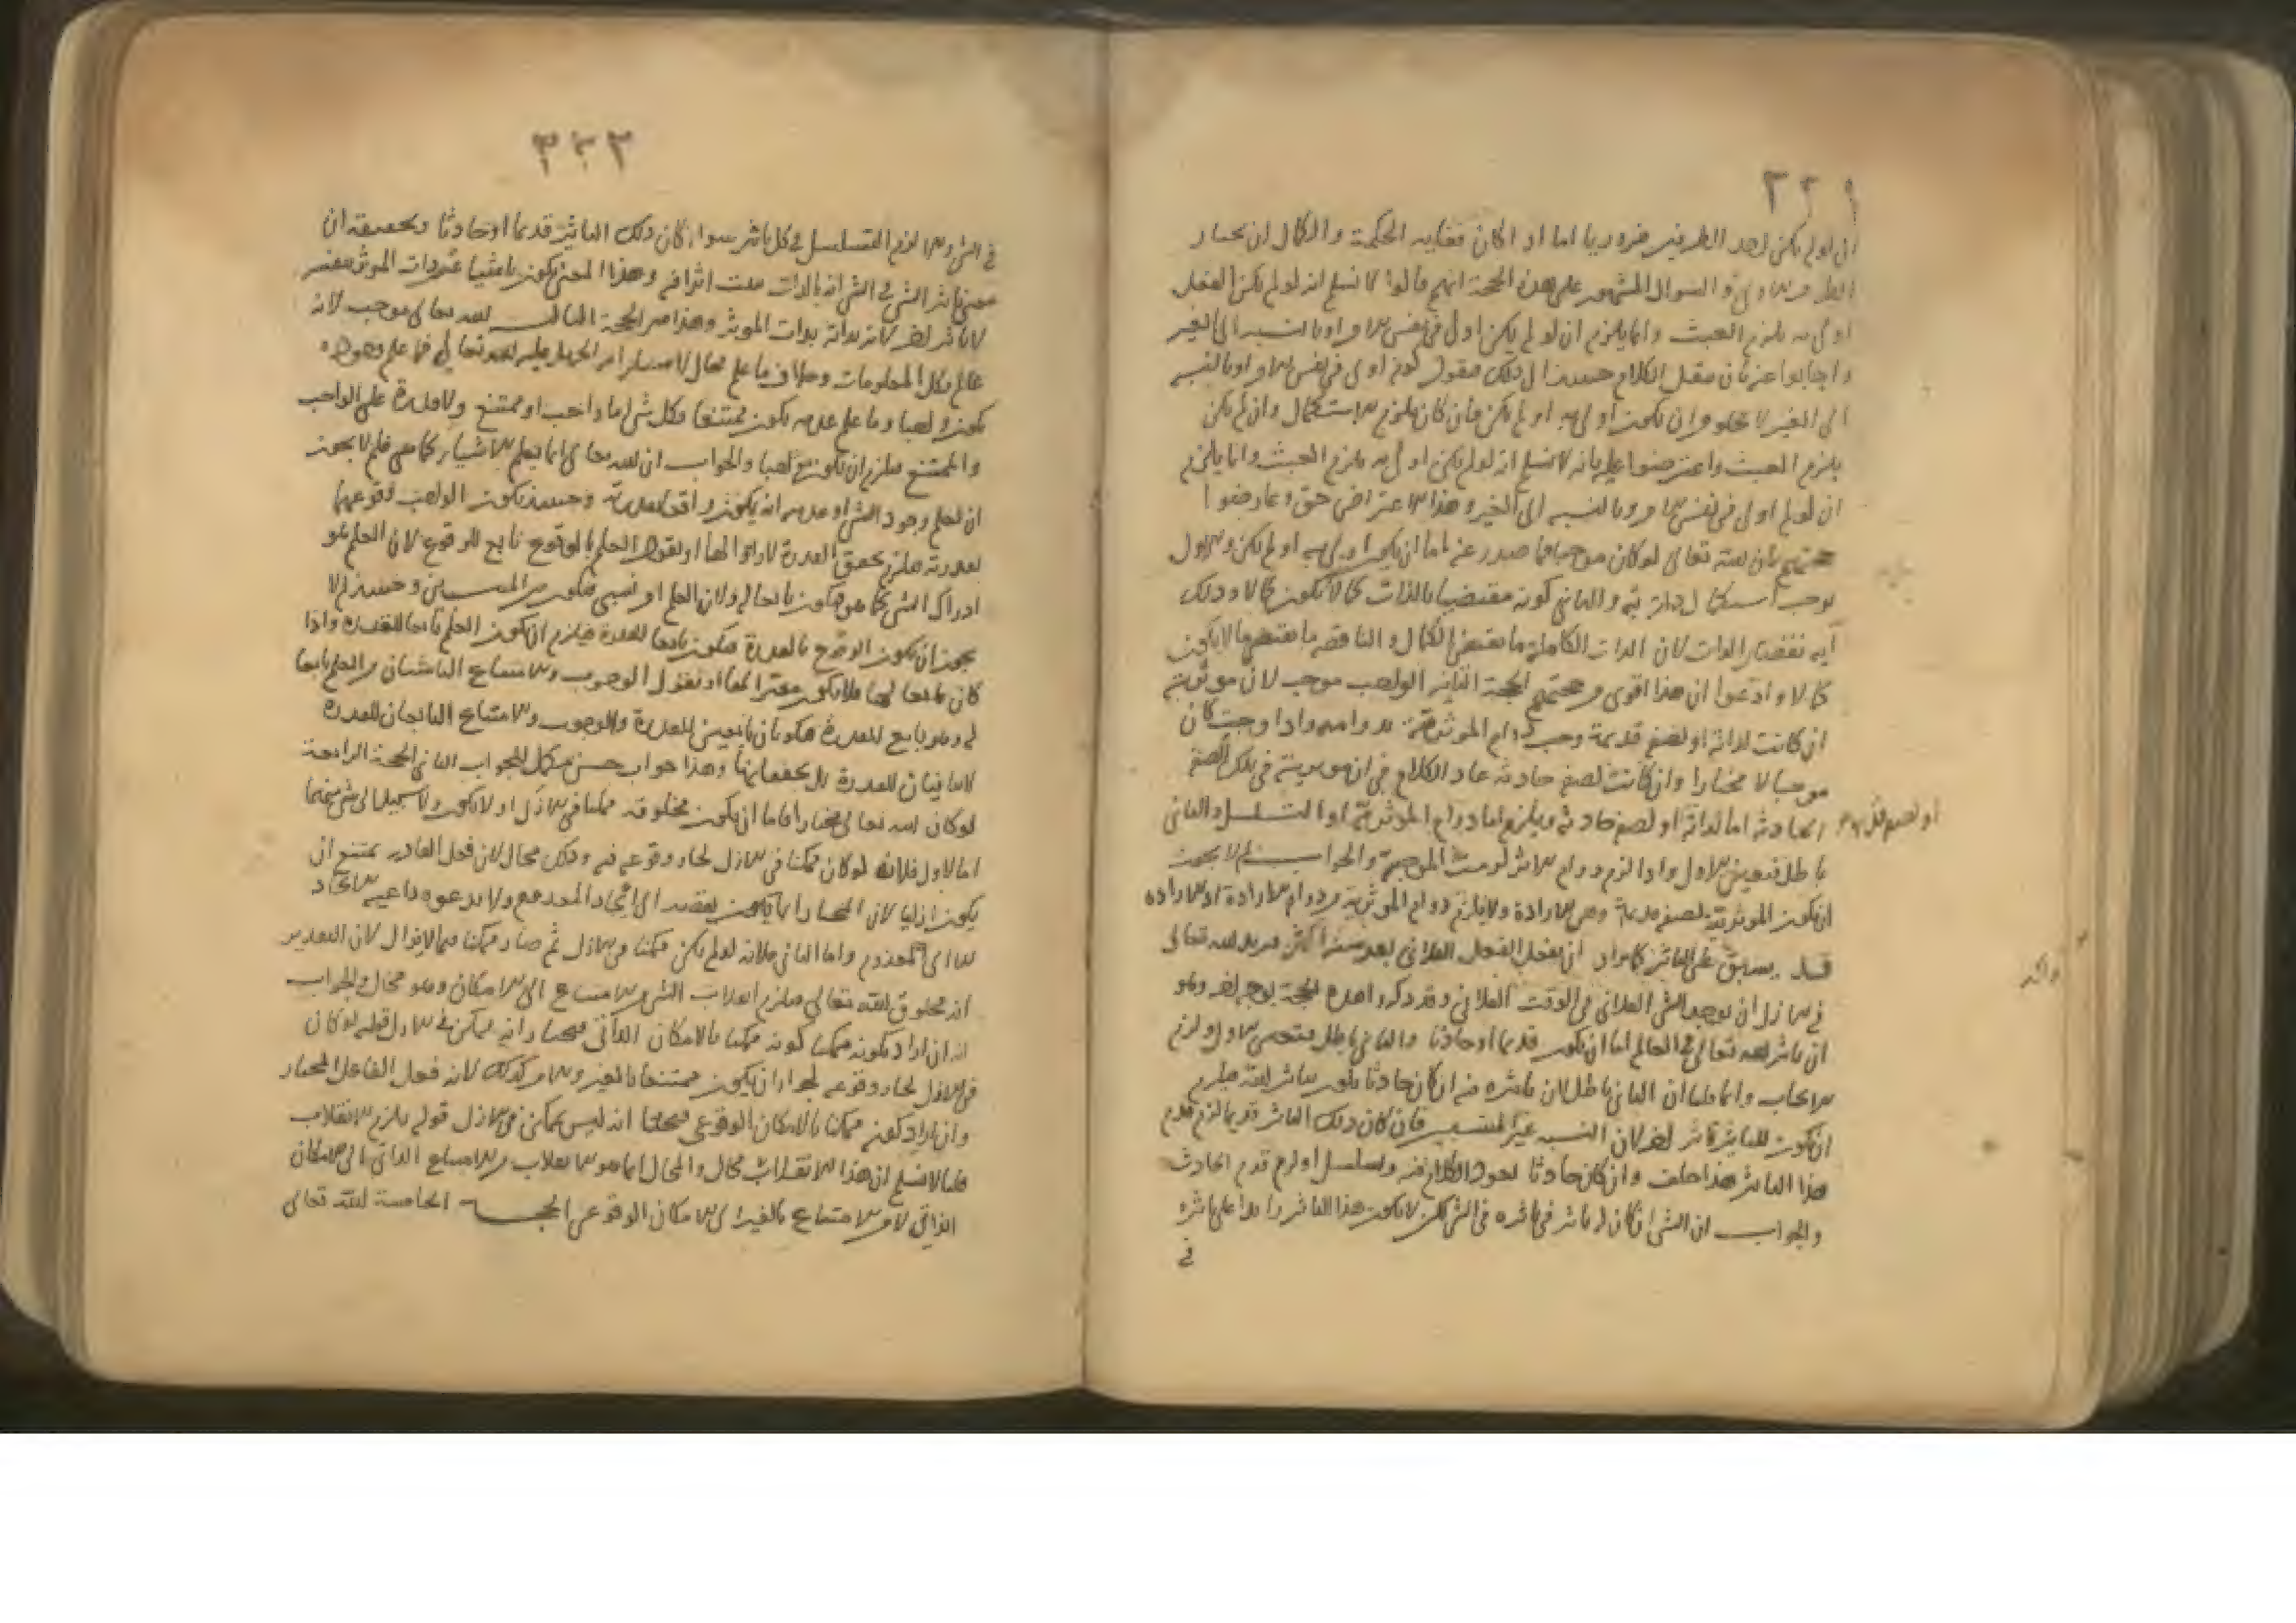 ان لو لم يكن احد الطرفين ضروريا اما اذا كان فغاية الحكمة والكمال ان يختار
الطرف الاولى والسوال المشهور على هذه الحجة انهم قالوا لا نسلم انه لو لم يكن الفعل
اولى به يلزم العبث وانما يلزم ان لو لم يكن اولى في نفس الامر او بالنسبة الى الغير
واجابوا عنه بان ننقل الكلام حينئذ الى ذلك فنقول كونه اولى في نفس الامر او بالنسبة
الى الغير لا يخلو من ان يكون اولى به او لم يكن فان كان يلزم الاستكمال وان لم يكن
يلزم العبث واعترضوا عليه بانه لا نسلم انه لو لم يكن اولى به يلزم العبث وانما يلزم
ان لو لم اولى في نفس الامر وبالنسبة الى الغير وهذا الاعتراض حق وعارضوا
حجتهم بان الله تعالى لو كان موجبا فما صدر عنه اما ان يكون اولى به او لم يكن والاول
يوجب استكمال ذاته به والثاني كونه مقتضيا بالذات كمالا لا يكون كمالا وذلك
آية نقصان الذات لان الذات الكاملة ما يقتضي الكمال والناقصة ما يقتضي ما لا يكون
كمالا وادعوا ان هذا اقوى من حجتهم الحجة الثانية الواجب موجب لان موثريته
ان كانت لذاته او لصفة قديمة وجب دوام الموثرية بدوامه واذا وجبت كان
موجبا لا مختارا وان كانت لصفة حادثة عاد الكلام في ان موثريته في تلك الصفة
الحادثة اما لذاته او لصفة حادثة ويلزم اما دوام الموثرية او التسلسل والثاني
باطل فتعين الاول واذا لزم دوام الاثر لزمت الموجبية والجواب لم لا يجوز
ان يكون الموثرية لصفة قديمة وهي الارادة ولا يلزم دوام الموثرية من دوام الارادة اذ الارادة
قد يسبق على التاثير كما يراد ان يفعل الفعل الفلاني بعد سنة او اكثر فيريد الله تعالى
في الازل ان يوجد الشي الفلاني في الوقت الفلاني وقد ذكروا هذه الحجة بوجه اخر وهو
ان تاثير الله تعالى في العالم اما ان يكون قديما او حادثا والثاني باطل فتعين الاول ولزم
الايجاب وانما قلنا ان الثاني باطل لان تاثيره فيه ان كان حادثا يكون بتاثير الله فيلزم
ان يكون للتاثير تاثير اخر لان النسبة غير المنتسبين فان كان ذلك التاثير قديما لزم قدم
هذا التاثير هذا خلف وان كان حادثا يعود الكلام فيه وتسلسل او لزم قدم الحادث
والجواب ان الشي اذا كان له تاثير في تاثيره في الشي لكن لا يكون هذا التاثير زايدا على تاثيره
في
٣٣٢
في الشي والا لزم التسلسل في كل تاثير سواء كان ذلك التاثير قديما او حادثا وتحقيقه ان
معنى تاثير الشي في الشي انه بالذات مثبت اثرا فيه وهذا المعنى يكون ناشيا عن ذات الموثر نفسه
لا بتاثير اخر لانه بذاته بذات الموثر وهذا من الحجة الثالثة الله تعالى موجب لانه
عالم بكل المعلومات وخلاف ما علم محال لاستلزامه الجهل عليه الله تعالى فما علم وجوده
يكون واجبا وما علم عدمه يكون ممتنعا فكل شي اما واجب او ممتنع ولا قدرة على الواجب
والممتنع فيلزم ان يكون موجبا والجواب ان الله تعالى انما يعلم الاشياء كما هي فلم لا يجوز
ان يعلم وجود الشي او عدمه انه يكون واقعا بقدرته وحينئذ يكون الواجب وقوعهما
بقدرته فيلزم تحقق القدرة لا زوالها او نقول العلم بالوقوع تابع للوقوع لان العلم هو
ادراك الشي كما هو فيكون تابعا له ولان العلم امر نسبي فيكون من المنتسبين وحينئذ لا
يجوز ان يكون الوقوع بالقدرة فيكون تابعا للقدرة فيلزم ان يكون العلم تابعا للقدرة واذا
كان تابعا لها فلا يكون مغيرا لها او نقول الوجوب والامتناع الناشيان من العلم تابعا
له وهو تابع للقدرة فيكونان تابعين للقدرة والوجوب والامتناع التابعان للقدرة
لا ينافيان للقدرة بل يحققانها وهذا جواب حسن مكمل للجواب الثاني الحجة الرابعة
لو كان الله تعالى مختارا فاما ان يكون مخلوقه ممكنا في الازل او لا يكون ولا سبيل الى شي منهما
اما الاول فلانه لو كان ممكنا في الازل لجاز وقوعه فيه وذلك محال لان فعل القادر يمتنع ان
يكون ازليا لان المختار انما يكون بقصد الى ايجاد المعدوم ولا يدعوه داعية الايجاد
الا الى المعدوم واما الثاني فلانه لو لم يكن ممكنا في الازل ثم صار ممكنا فيما لا يزال لان التقدير
انه مخلوق لله تعالى فيلزم انقلاب الشي من الامتناع الى الامكان وهو محال والجواب
انه ان اراد بكونه ممكنا كونه ممكنا بالامكان الذاتي فنختار انه ممكن في الازل قوله لو كان
في الازل لجاز وقوعه لجواز ان يكون ممتنعا بالغير والامر كذلك لانه فعل الفاعل المختار
وان اراد كونه ممكنا بالامكان الوقوعي فنختار انه ليس بممكن في الازل قوله يلزم الانقلاب
قلنا لا نسلم ان هذا الانقلاب محال والمحال انما هو الانقلاب من الامتناع الذاتي الى الامكان
الذاتي لا من الامتناع بالغير الى الامكان الوقوعي الحجة الخامسة لله تعالى